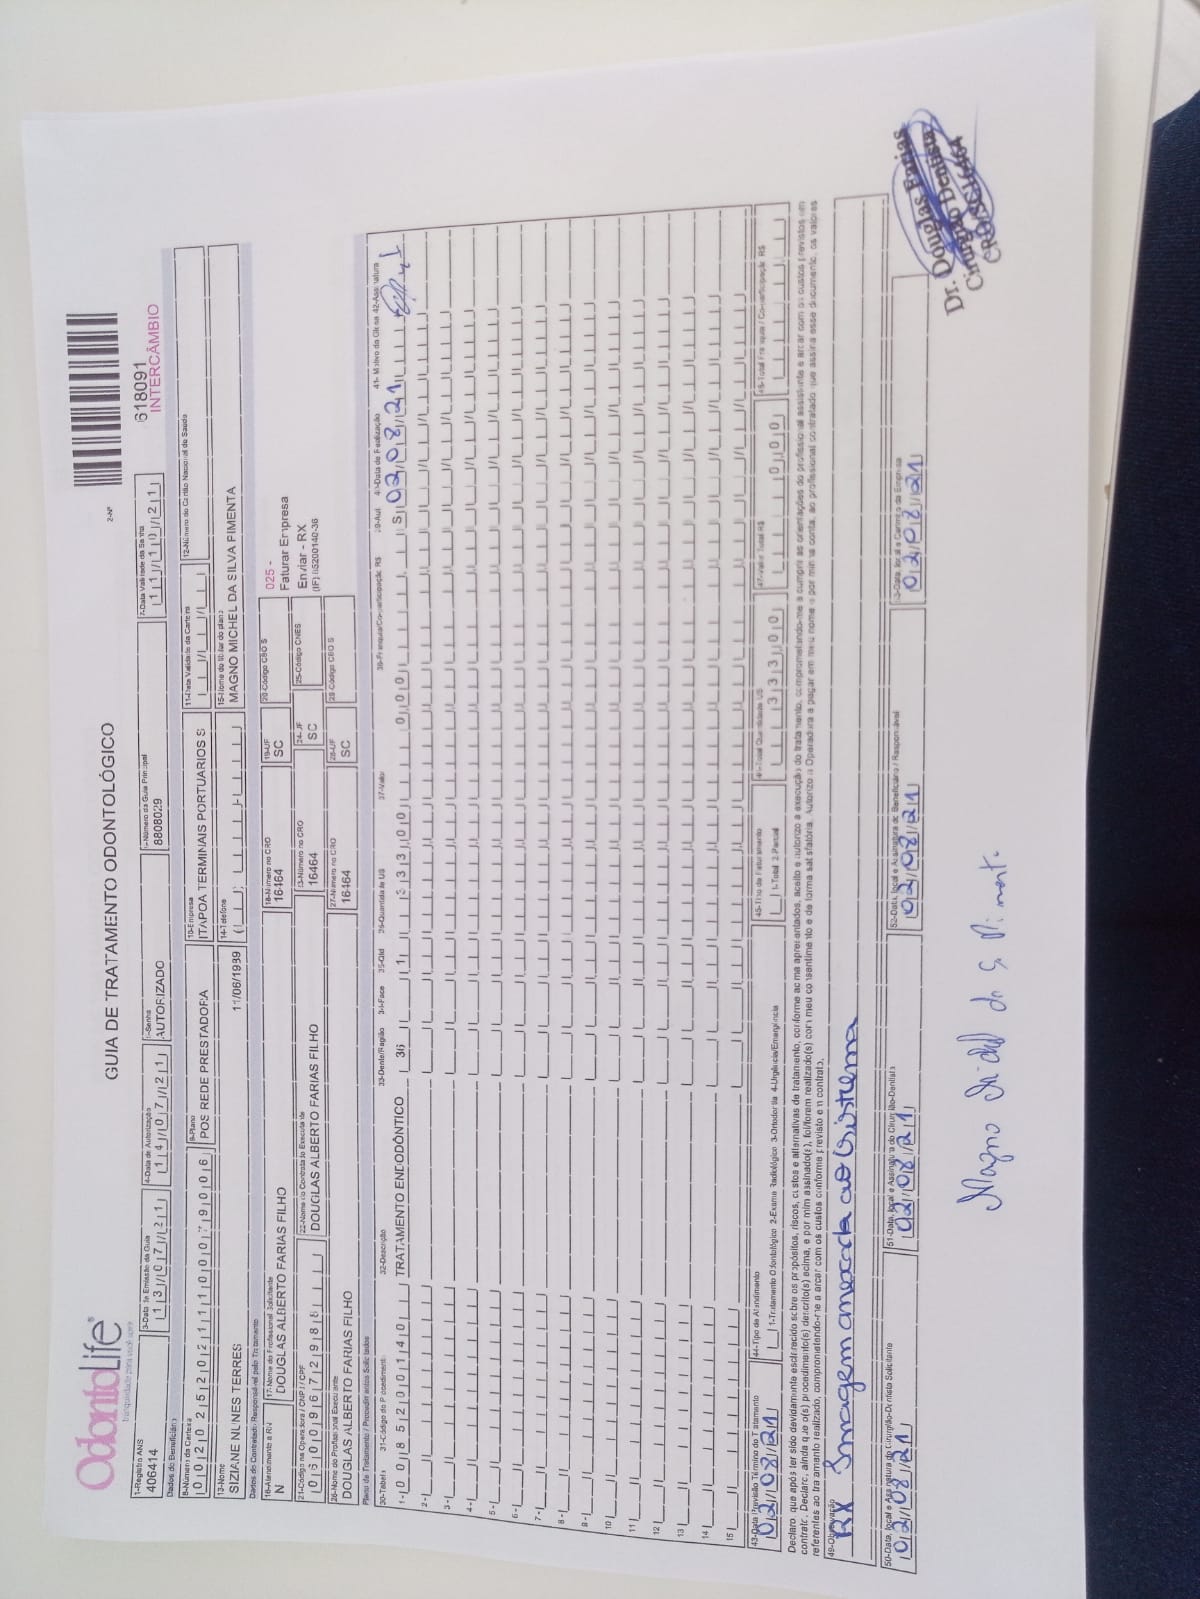 OdontoLife®
tranquilidade para você sorrir
GUIA DE TRATAMENTO ODONTOLÓGICO
2-Nº
618091
INTERCÂMBIO
1-Registro ANS
406414
3-Data de Emissão da Guia
13/07/21
4-Data de Autorização
14/07/21
5-Senha
AUTORIZADO
6-Número da Guia Principal
8808029
7-Data Validade da Senha
11/10/21
Dados do Beneficiário
8-Número da Carteira
9-Plano
POS REDE PRESTADORA
10-Empresa
ITAPOA TERMINAIS PORTUARIOS S
11-Data Validade da Carteira
12-Número do Cartão Nacional de Saúde
13-Nome
SIZIANE NUNES TERRES
11/06/1989
14-Telefone
15-Nome do titular do plano
MAGNO MICHEL DA SILVA PIMENTA
Dados do Contratado Responsável pelo Tratamento
16-Atendimento a RN
N
17-Nome do Profissional Solicitante
DOUGLAS ALBERTO FARIAS FILHO
18-Número no CRO
16464
19-UF
SC
20-Código CBO S
025 -
Faturar Empresa
21-Código na Operadora / CNPJ / CPF
22-Nome do Contratado Executante
DOUGLAS ALBERTO FARIAS FILHO
23-Número no CRO
16464
24-UF
SC
25-Código CNES
Enviar - RX
26-Nome do Profissional Executante
DOUGLAS ALBERTO FARIAS FILHO
27-Número no CRO
16464
28-UF
SC
29-Código CBO S
Plano de Tratamento / Procedimentos Solicitados
30-Tabela 31-Código do Procedimento 32-Descrição 33-Dente/Região 34-Face 35-Qtd 36-Quantidade US 37-Valor 38-Franquia/Co-participação R$ 39-Aut 40-Data de Realização 41-Motivo da Glosa 42-Assinatura
1- 00 85200140 TRATAMENTO ENDODÔNTICO 36 1 333,00 0,00 S 02/08/21
2-
3-
4-
5-
6-
7-
8-
9-
10
11
12
13
14
15
43-Data Previsão Término do Tratamento
02/08/21
44-Tipo de Atendimento
1-Tratamento Odontológico 2-Exame Radiológico 3-Ortodontia 4-Urgência/Emergência
45-Tipo de Faturamento
1-Total 2-Parcial
46-Total Quantidade US
333,00
47-Valor Total R$
0,00
48-Total Franquia / Co-participação R$
Declaro, que após ter sido devidamente esclarecido sobre os propósitos, riscos, custos e alternativas de tratamento, conforme acima apresentados, aceito e autorizo a execução do tratamento, comprometendo-me a cumprir as orientações do profissional assistente e arcar com os custos previstos em
contrato. Declaro, ainda que o(s) procedimento(s) descrito(s) acima, e por mim assinado(s), foi/foram realizado(s) com meu consentimento e de forma satisfatória. Autorizo a Operadora a pagar em meu nome e por minha conta, ao profissional contratado que assina esse documento, os valores
referentes ao tratamento realizado, comprometendo-me a arcar com os custos conforme previsto em contrato.
49-Observação
RX Imagem anexada ao sistema
50-Data, local e Assinatura do Cirurgião-Dentista Solicitante
02/08/21
51-Data, local e Assinatura do Cirurgião-Dentista
02/08/21
52-Data, local e Assinatura do Beneficiário / Responsável
02/08/21
53-Data, local e Carimbo da Empresa
02/08/21
Dr. Douglas Farias
Cirurgião Dentista
CRO/SC 16464
Magno Michel da S. Pimenta